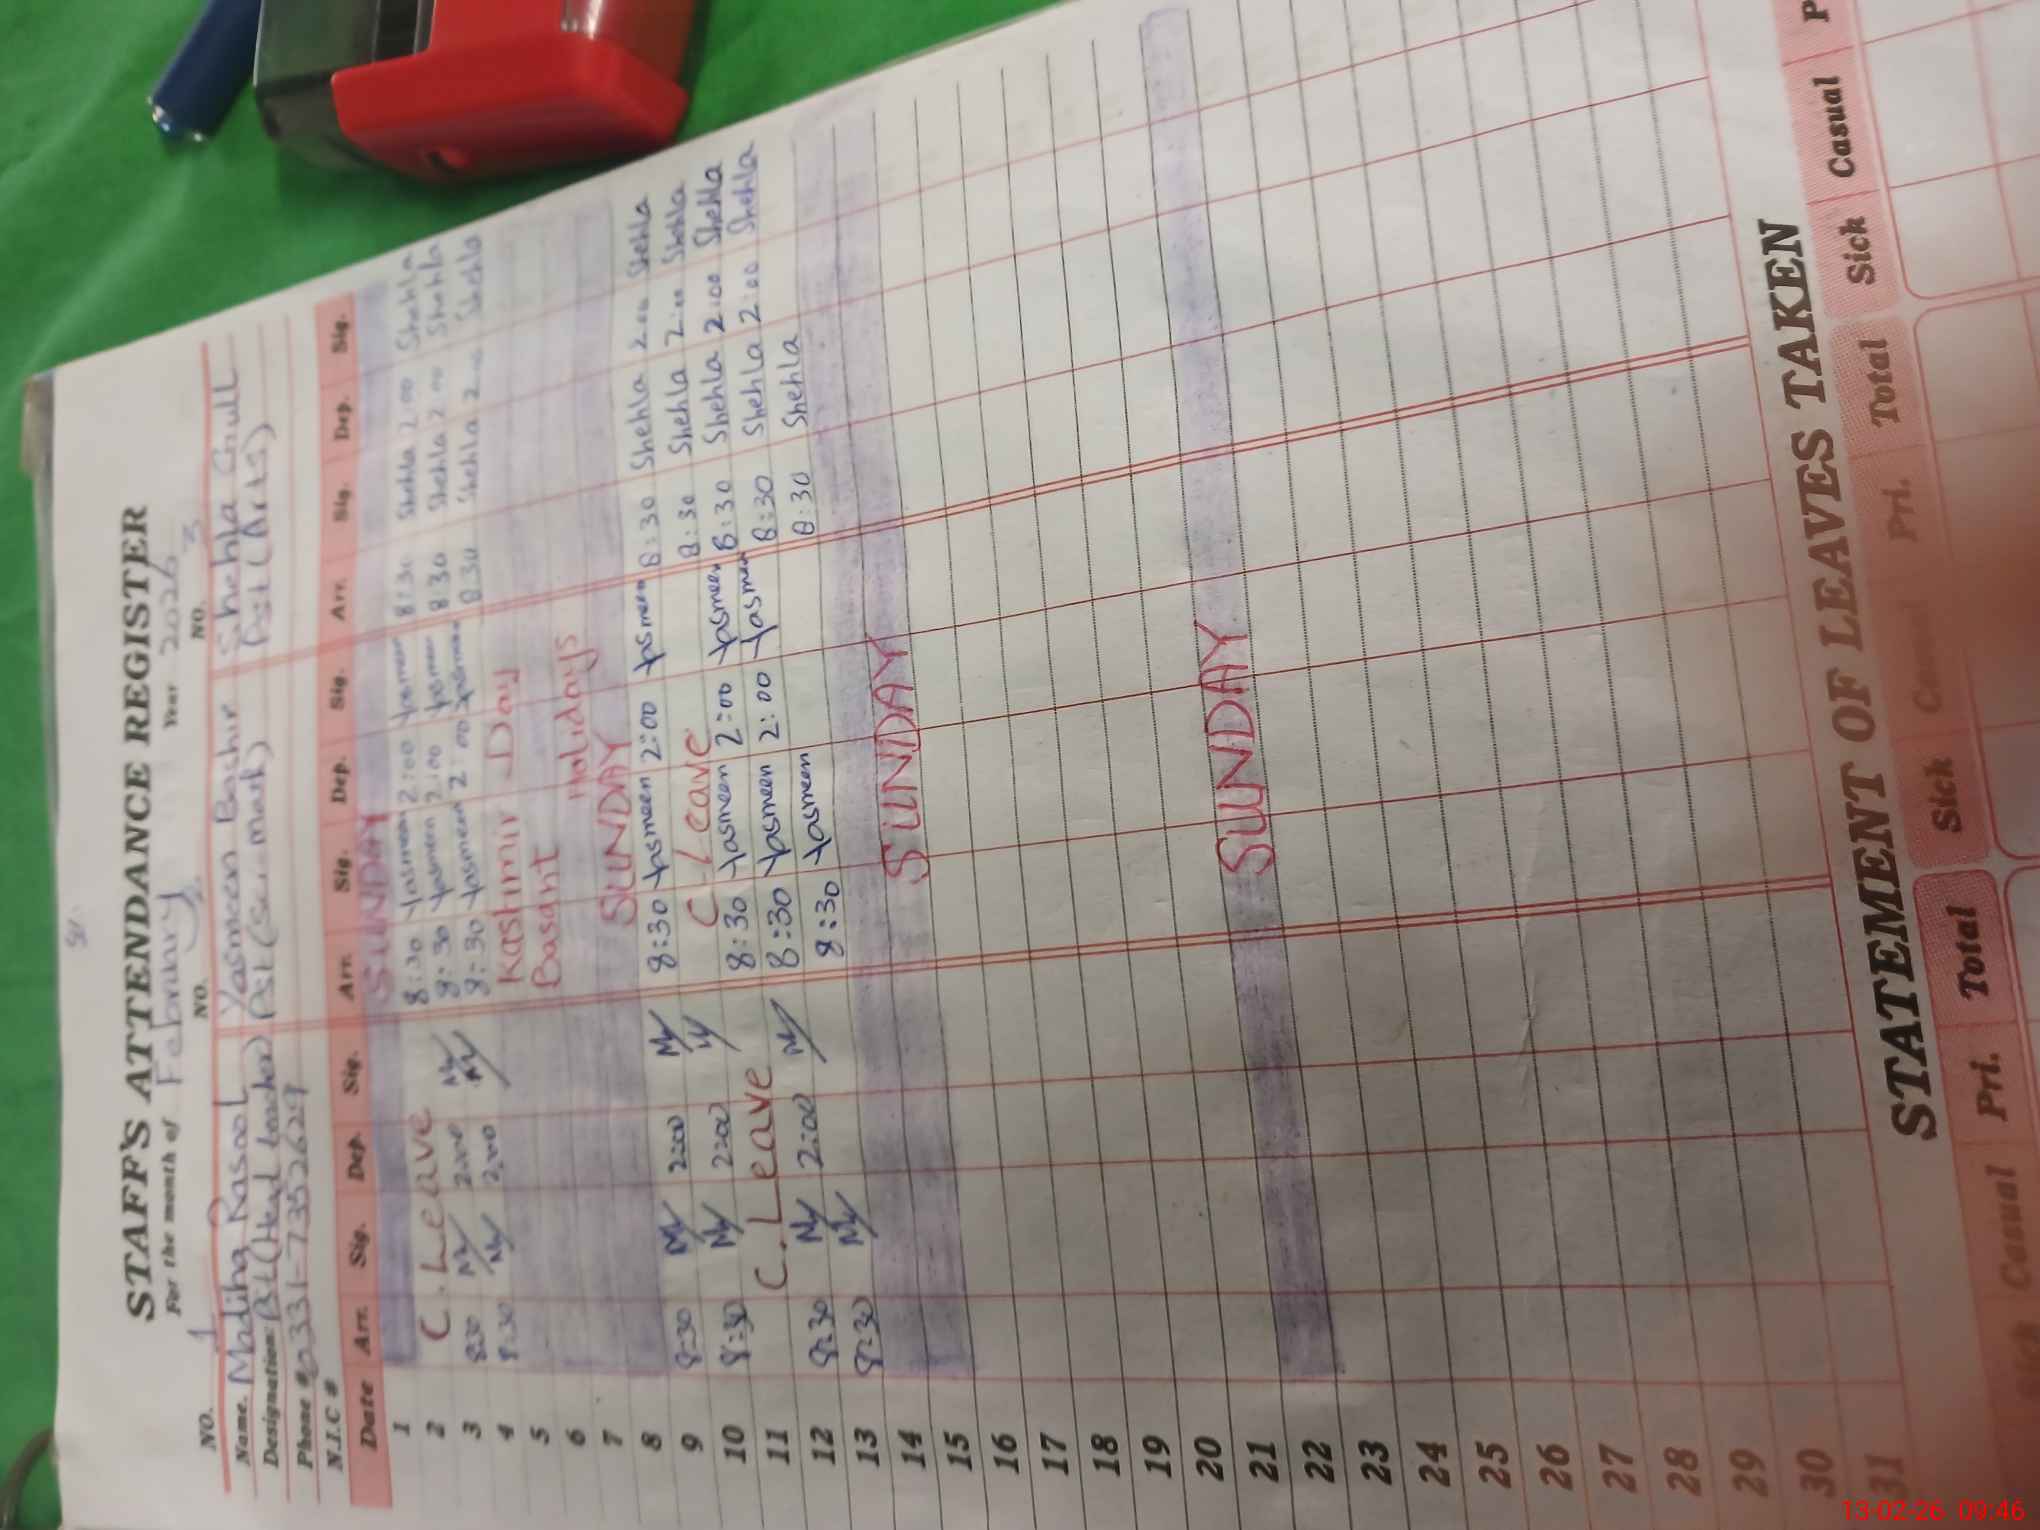 STAFF'S ATTENDANCE REGISTER
For the month of February Year 2026
NO. 1 NO. 2 NO. 3
Name. Madiha Rasool Yasmeen Bashir Shehla Gull
Designation: (Head teacher) Pst (Sci. math) Pst (Arts)
Phone # 0331-7352629
N.I.C #
Date Arr. Sig. Dep. Sig. Arr. Sig. Dep. Sig. Arr. Sig. Dep. Sig.
1 SUNDAY
2 C. Leave 8:30 Yasmeen 2:00 Yasmeen 8:30 Shehla 2:00 Shehla
3 8:30 2:00 8:30 Yasmeen 2:00 Yasmeen 8:30 Shehla 2:00 Shehla
4 8:30 2:00 8:30 Yasmeen 2:00 Yasmeen 8:30 Shehla Shehla
5 Kashmir Day
6 Basant
7 Holidays
8 SUNDAY
9 8:30 2:00 8:30 Yasmeen 2:00 Yasmeen 8:30 Shehla 2:00 Shehla
10 8:30 2:00 C. Leave 8:30 Shehla 2:00 Shehla
11 C. Leave 8:30 Yasmeen 2:00 Yasmeen 8:30 Shehla 2:00 Shehla
12 8:30 2:00 8:30 Yasmeen 2:00 Yasmeen 8:30 Shehla 2:00 Shehla
13 8:30 8:30 Yasmeen 8:30 Shehla
14
15 SUNDAY
16
17
18
19
20
21
22 SUNDAY
23
24
25
26
27
28
29
30
31
STATEMENT OF LEAVES TAKEN
Sick Casual Pri. Total Sick Pri. Total Sick Casual P
13-02-26 09:46